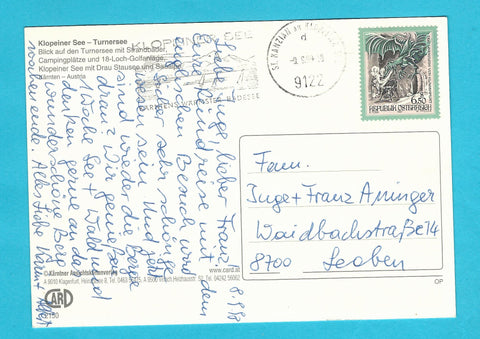 Klopeiner See – Turnersee
Blick auf den Turnersee mit Strandbäder,
Campingplätze und 18-Loch-Golfanlage,
Klopeiner See mit Drau Stausee und
Kärnten – Austria
KLOPEINER SEE
KÄRNTENS WÄRMSTER BADESEE
ST. KANZIAN AM
9122
6.50
REPUBLIK ÖSTERREICH
Liebe Inge, lieber Franz,
Eure Rundreise mit dem
englischen Besuch wird
sicher sehr schön ge-
wesen sein. Und jetzt
sind wieder die Berge
dran? Wir genießen
1 Woche See + Wald und
denken gerne an das
wunderschöne Berg-
wochenende. Alles Liebe
8.9.98
Fam.
Inge + Franz Aninger
Waidbachstraße 14
8700 Leoben
© Kärntner Ansichtskartenverlag
A 9010 Klagenfurt,
www.card.at
Tel. 04242 56062
CARD
OP